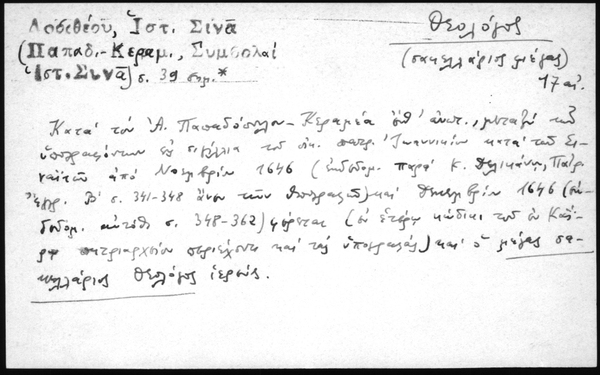 Δοσιθέου, Ἱστ. Σινᾶ
(Παπαδ.-Κεραμ., Συμβολαί
Ἱστ. Σινᾶ) σ. 39 σημ.*
Θεολόγος
(σακελλάριος μέγας)
17 αἰ.
Κατὰ τὸν Ἀ. Παπαδόπουλον-Κεραμέα ἔνθ' ἀνωτ., μεταξὺ τῶν
ὑπογραφόντων ἐν σιγίλλια τοῦ οἰκ. πατρ. Ἰωαννικίου κατὰ τῶν Σι-
ναϊτῶν ἀπὸ Νοεμβρίου 1646 (ἐκδεδομ. παρὰ Κ. Δελικάνη, Πατρ.
Ἔγγρ. Β' σ. 341-348 ἄνευ τῶν ὑπογραφῶν) καὶ Δεκεμβρίου 1646 (ἐκ-
δεδομ. αὐτόθι σ. 348-362) φέρεται (ἐν ἑτέρῳ κώδικι τοῦ ἐν Καΐ-
ρῳ πατριαρχείου περιέχοντι καὶ τὰς ὑπογραφάς) καὶ ὁ μέγας σα-
κελλάριος Θεολόγος ἱερεύς.